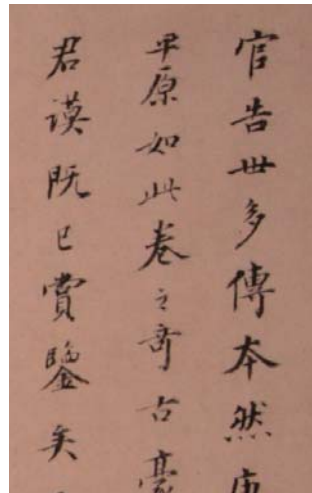 官告世多傳本然
平原如此卷之奇古豪
君謨既已賞鑒矣